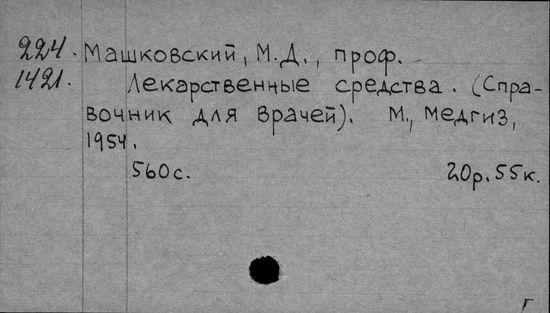 224. Машковский, М.Д., проф.
1421. Лекарственные средства. (Спра-
вочник для врачей). М., Медгиз,
1954.
560с. 20р.55к.
г